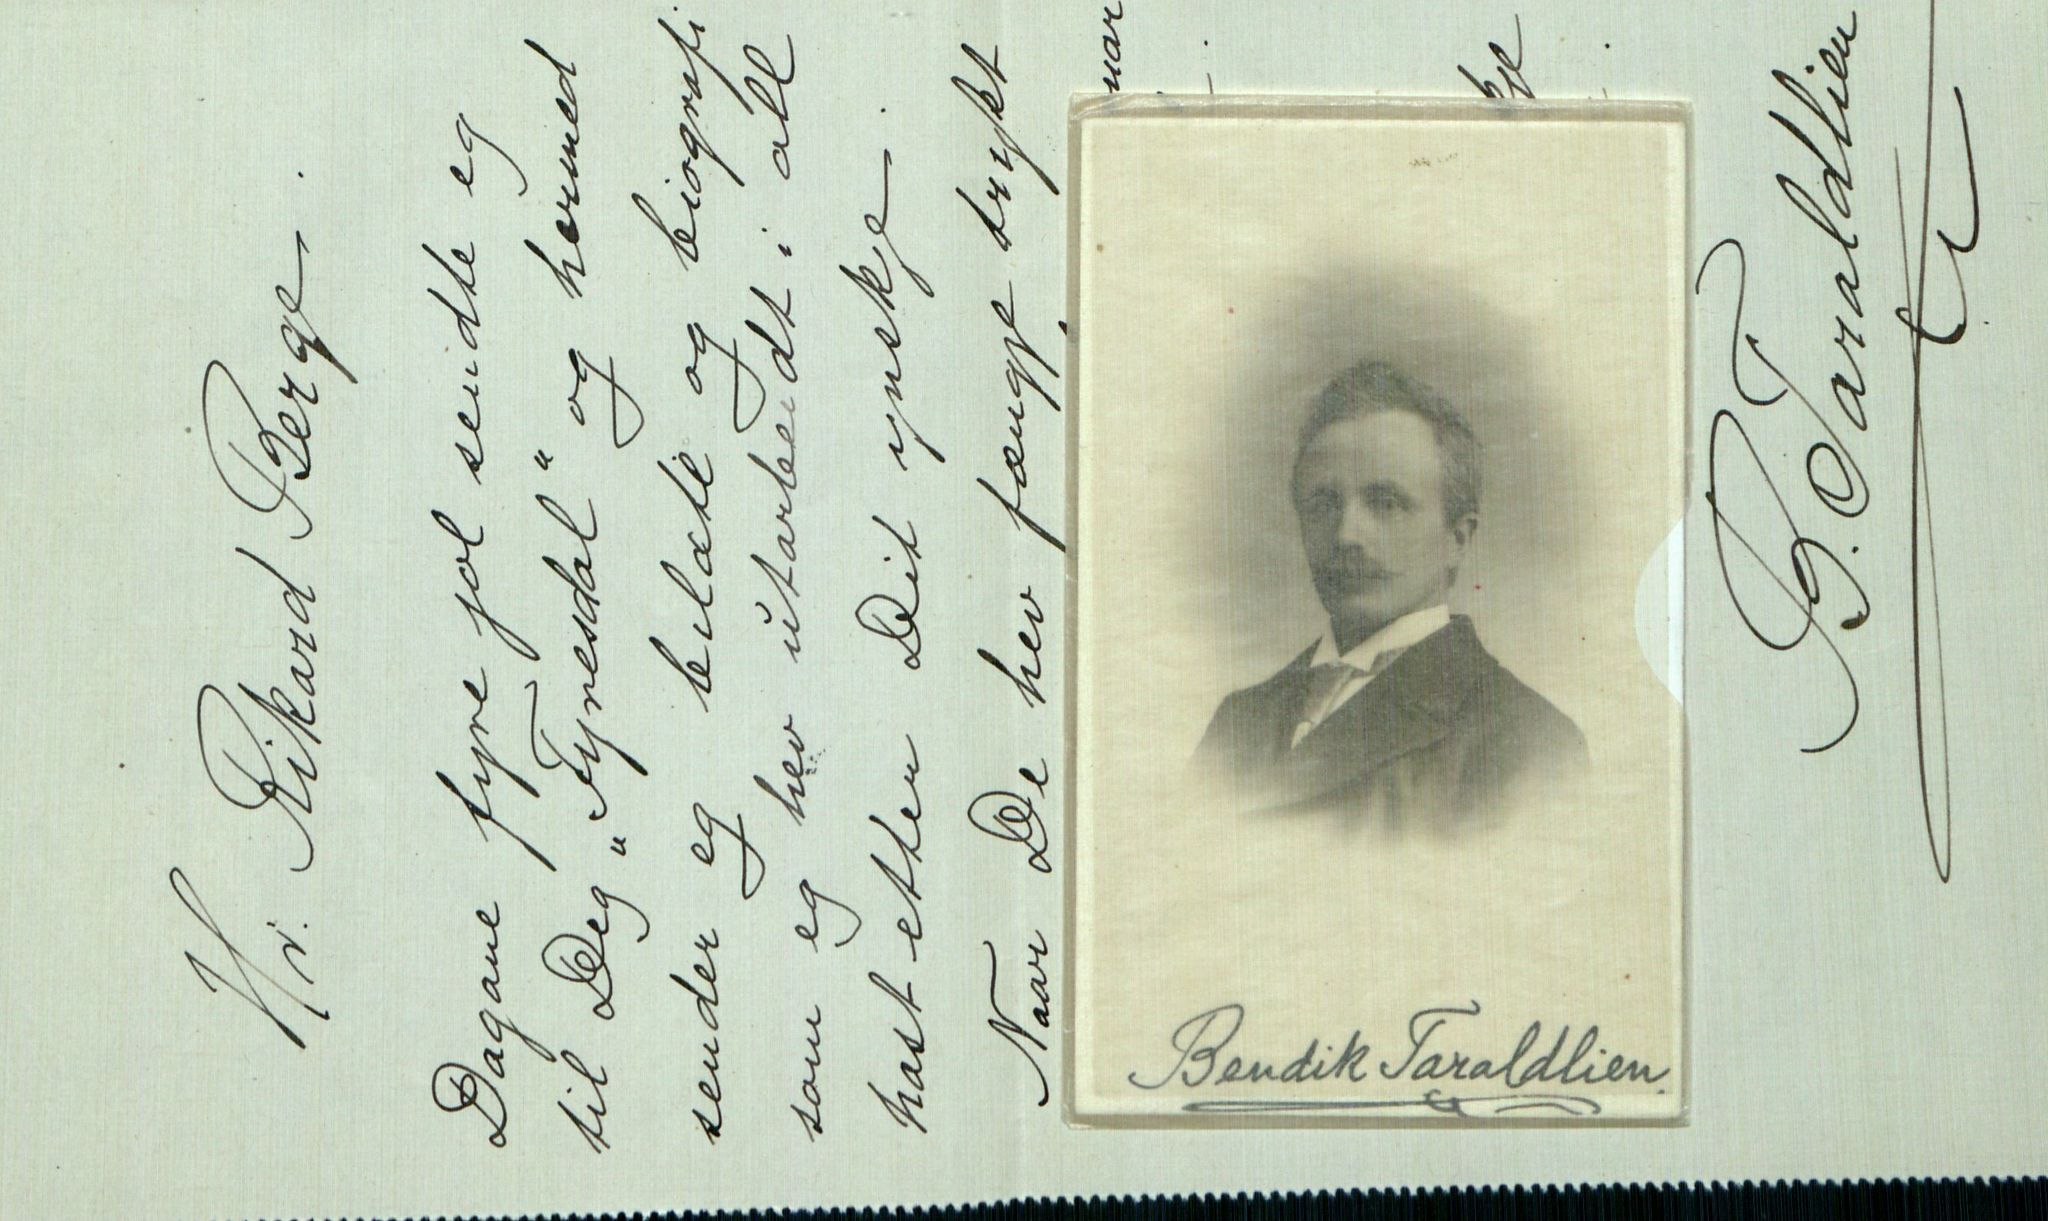 Hr. Rikard Berge.
Dagane fyre jol sendte eg
til Deg "Fyresdal" og hermed
sender eg bilæte og biografi
som eg hev utarbeidt i all
hast etter Dit ynskje.
Naar De hev fænge trykt
nar
kje
B. Taraldlien
Bendik Taraldlien.